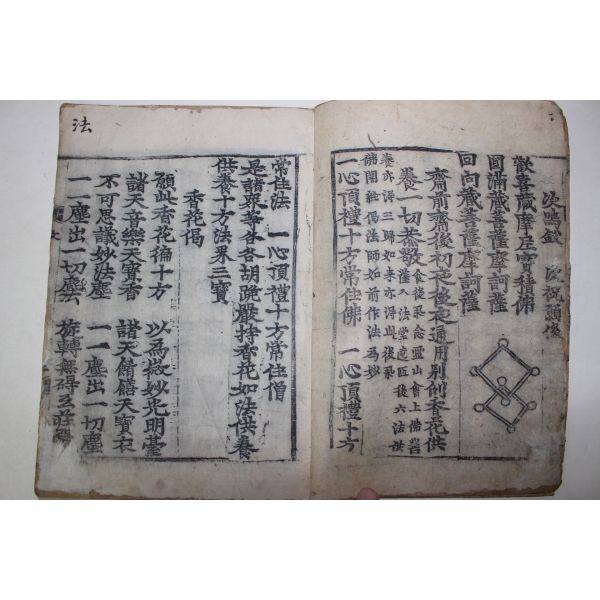 次鳴鈸 次祝願後
歡喜藏摩尼寶積佛
圓滿藏菩薩摩訶薩
回向藏菩薩摩訶薩
齋前齋後初夜後夜通用別例香花供
養一切恭敬
一心頂禮十方常住佛 一心頂禮十方
法
常住法 一心頂禮十方常住僧
是諸衆等各各胡跪嚴持香花如法供養
供養十方法界三寶
香花偈
願此香花徧十方 以為微妙光明臺
諸天音樂天寶香 諸天餚饍天寶衣
不可思議妙法塵 一一塵出一切塵
一一塵出一切雲 旋轉無碍互莊嚴